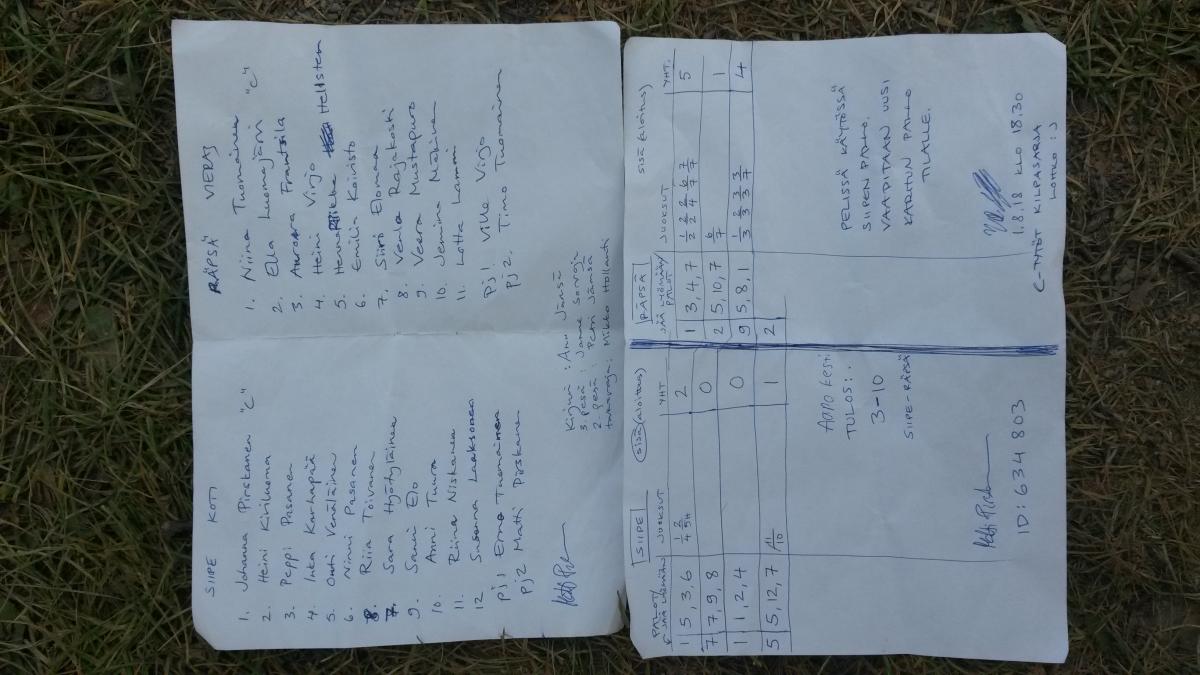 SIIPE KOTI
1. Johanna Pirskanen "C"
2. Heini Kiriluoma
3. Peppi Pasanen
4. Inka Karhapää
5. Outi Venäläinen
6. Ninni Pasanen
8. Riia Toivanen
7. Sara Hyötyläinen
9. Sanni Elo
10. Anni Tuura
11. Riina Niskanen
12 Susanna Laaksonen
Pj1 Erno Tuomainen
Pj2 Matti Pirskanen
RÄPSÄ VIERAS
1. Niina Tuomainen "C"
2. Ella Luomajärvi
3. Aurora Frantsila
4. Heini Virjo
5. Henna Hellsten
6. Emilia Koivisto
7. Siiri Elomaa
8. Venla Rajakoski
9. Veera Mustapuro
10. Jemina Näkinen
11. Lotta Lammi
Pj1 Ville Virjo
Pj2. Timo Tuomainen
Kirjuri : Anu Jänsä
3. pesä : Janne Sorvoja
2. pesä : Petri Jänsä
takaraja: Mikko Hollanti
SIIPE sisä (aloitus)
PALOT/ JÄÄ LYÖMÄÄN JUOKSUT YHT
1 5, 3, 6 1/4 2/5H 2
7 7, 9, 8 0
1 1, 2, 4 0
5 5, 12, 7 11/10 1
RÄPSÄ SISÄ (ALOITUS)
JÄÄ LYÖMÄÄN/ PALOT JUOKSUT YHT.
1 3, 4, 7 1/2 2/2 2/4 6/7 7/7 5
2 5, 10, 7 6/7 1
9 5, 8, 1 1/3 2/3 2/3 3/7 4
2
Aano kesti
TULOS:.
3-10
SIIPE-RÄPSÄ
PELISSÄ KÄYTÖSSÄ
SIIPEN PALLO.
VAADITAAN UUSI
KARHUN PALLO
TILALLE.
ID: 634 803
1.8.18 KLO 18.30
C-TYTÖT KILPASARJA
LOHKO :J